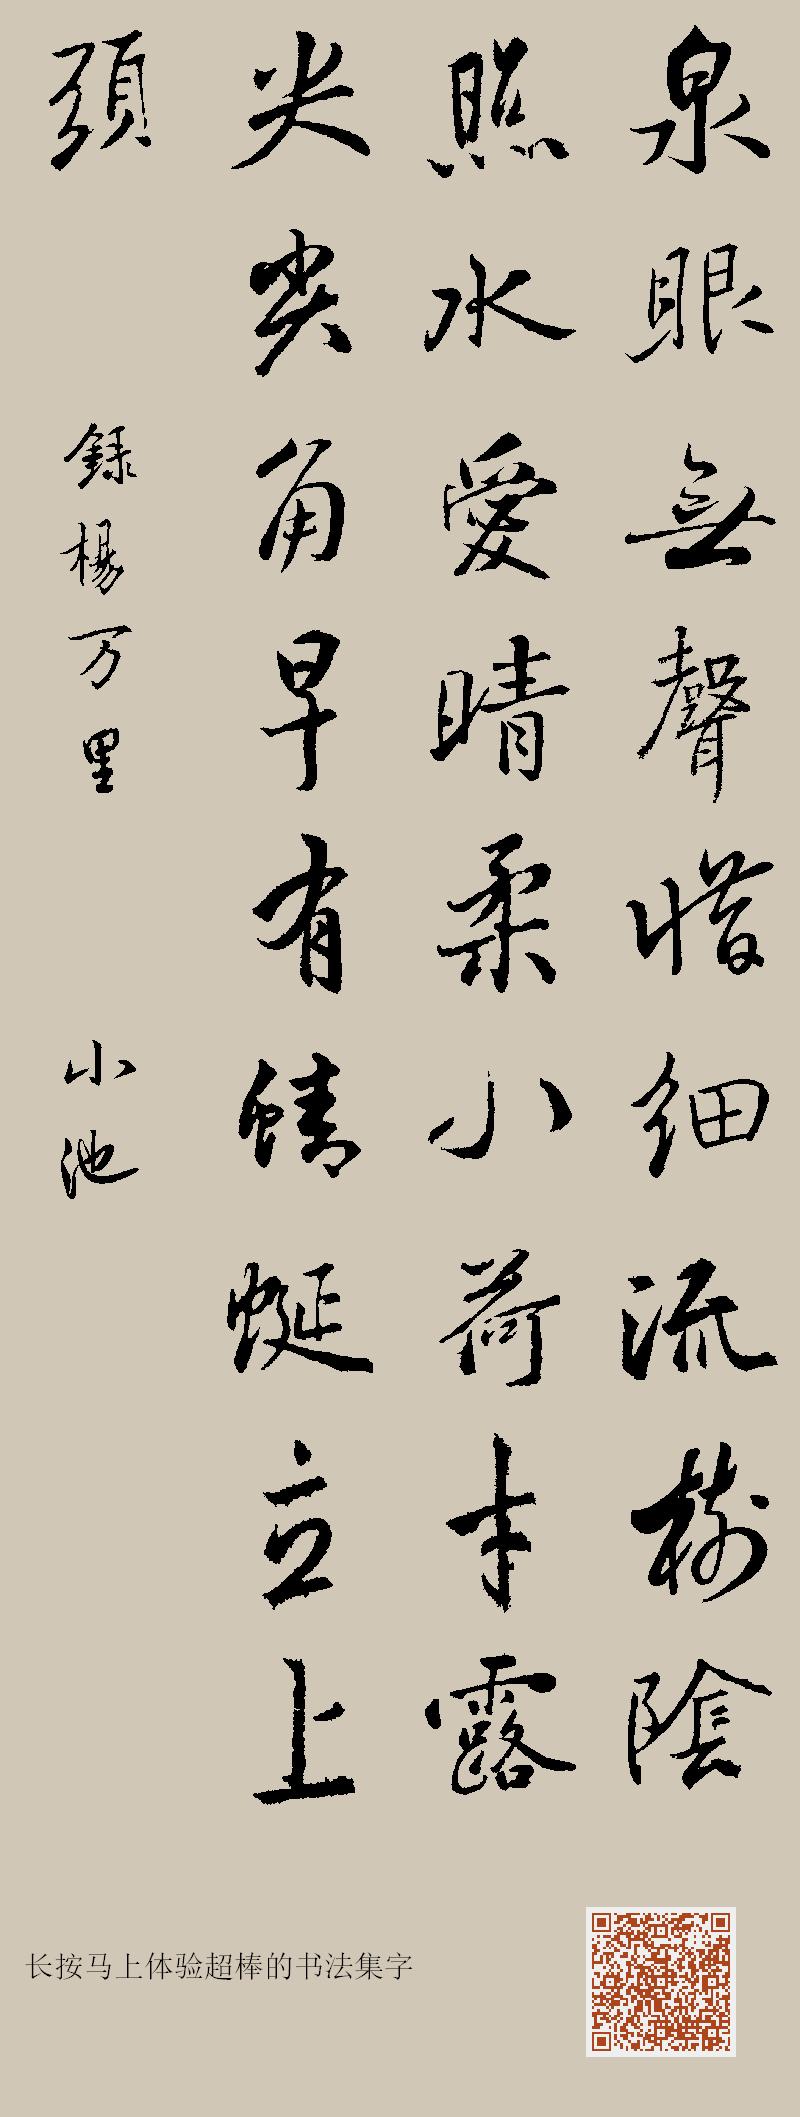 泉眼無聲惜細流樹陰
照水愛晴柔小荷才露
尖尖角早有蜻蜓立上
頭 録楊万里 小池
长按马上体验超棒的书法集字